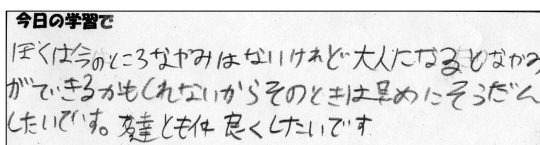 今日の学習で
ぼくは今のところなやみはないけれど大人になるとなやみ
ができるかもしれないからそのときは早めにそうだん
したいです。友達とも仲良くしたいです